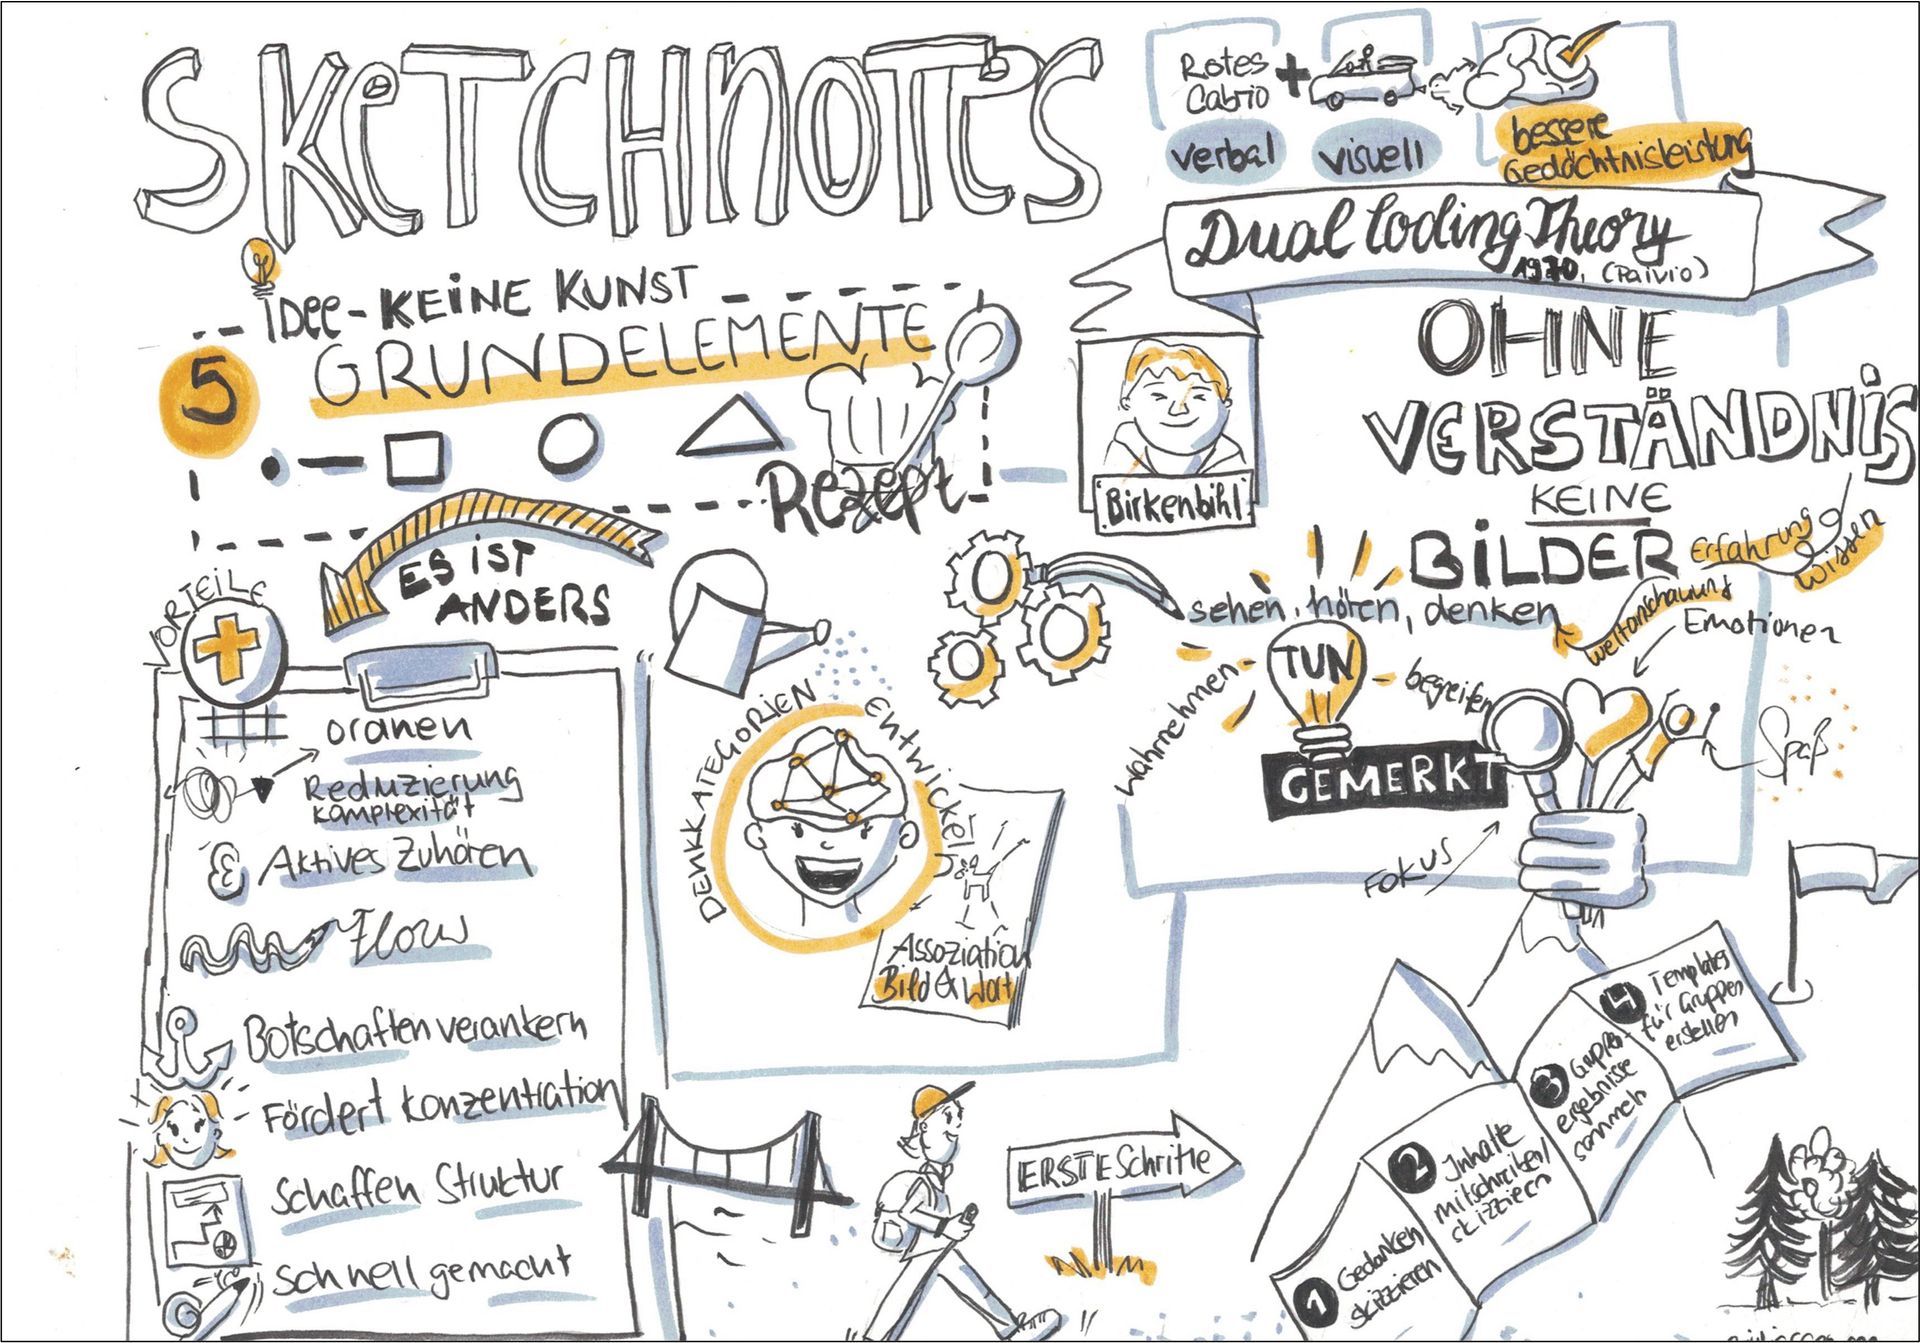 SKeTCHnoTes
IDee - KEiNE KUNST
5
GRUNDELEMENTE
Rezept
ES iST
ANDERS
VORTEILE
oranen
Reduzierung
Komplexität
Aktives Zuhören
Flow
Botschaften verankern
Fördert Konzentration
Schaffen Struktur
Schnell gemacht
Rotes
Cabrio
+
verbal
visuell
bessere
Gedächtnisleistung
Dual Coding Theory
1970, (Paivio)
Birkenbihl
OHNE
VERSTÄNDNiS
KEINE
BiLDER
Erfahrung
Wissen
Weltanschauung
Emotionen
sehen, hören, denken
wahrnehmen
TUN
begreifen
GEMERKT
Spaß
Fokus
DENKKATEGORIEN ENTWICKELN
Assoziation
Bild & Wort
ERSTE Schritte
1 Gedanken
skizzieren
2 Inhalte
mitschreiben/
skizzieren
3 Gruppen-
ergebnisse
sammeln
4 Templates
für Gruppen
erstellen